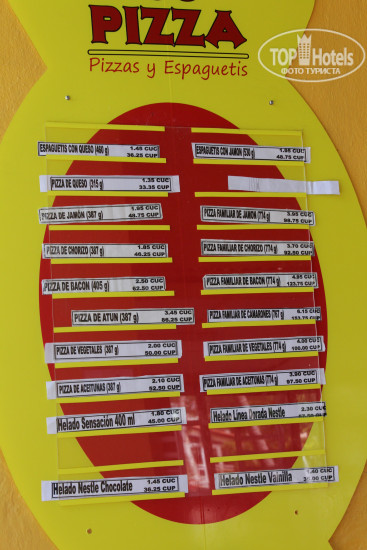 PIZZA
Pizzas y Espaguetis
TOP Hotels
ФОТО ТУРИСТА
ESPAGUETIS CON QUESO (460 g) 1.45 CUC
36.25 CUP
ESPAGUETIS CON JAMON (530 g) 1.95 CUC
48.75 CUP
PIZZA DE QUESO (315 g) 1.35 CUC
33.35 CUP
PIZZA DE JAMÓN (387 g) CUC
CUP
PIZZA FAMILIAR DE JAMÓN (774 g) 3.95 CUC
98.75 CUP
PIZZA DE CHORIZO (387 g) 1.85 CUC
46.25 CUP
PIZZA FAMILIAR DE CHORIZO (774 g) 3.70 CUC
92.50 CUP
PIZZA DE BACON (405 g) 2.50 CUC
62.50 CUP
PIZZA FAMILIAR DE BACON (774 g) 4.95 CUC
123.75 CUP
PIZZA DE ATUN (387 g) 3.45 CUC
86.25 CUP
PIZZA FAMILIAR DE CAMARONES (767 g) 6.15 CUC
153.75 CUP
PIZZA DE VEGETALES (387 g) 2.00 CUC
50.00 CUP
PIZZA FAMILIAR DE VEGETALES (774 g) 4.00 CUC
100.00 CUP
PIZZA DE ACEITUNAS (387 g) 2.10 CUC
52.50 CUP
PIZZA FAMILIAR DE ACEITUNAS (774 g) 3.90 CUC
97.50 CUP
Helado Sensación 400 ml 1.80 CUC
45.00 CUP
Helado Linea Dorada Nestle 2.30 CUC
CUP
Helado Nestle Chocolate 1.45 CUC
36.25 CUP
Helado Nestle Vainilla 1.40 CUC
35.00 CUP